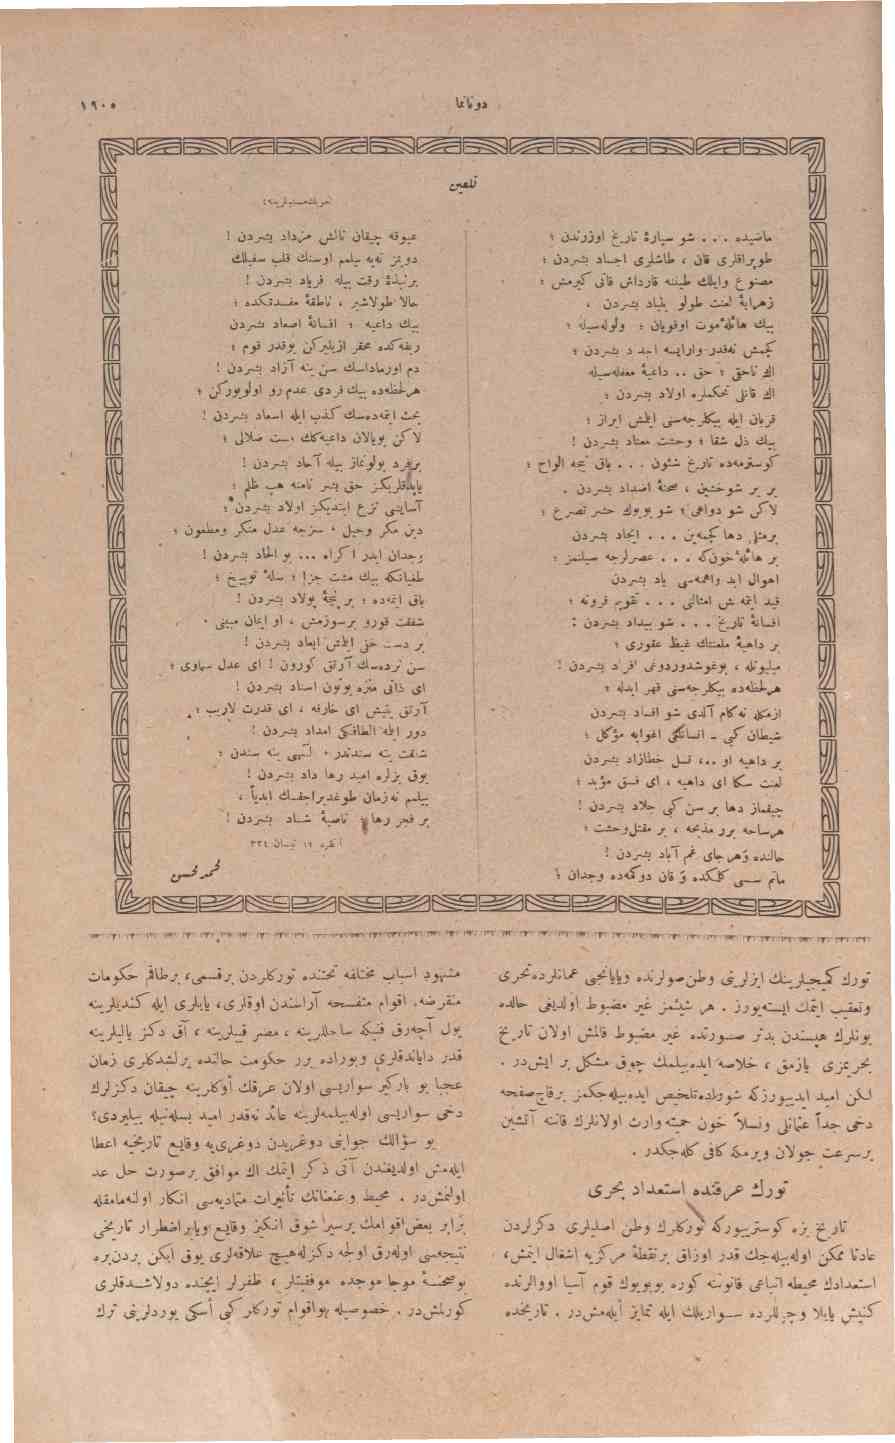 دونانما
١٩٠٥
تلعین
ماضیده ... شو سیارۀ تاریخ اوزرندن ؛
طوپراقلری قان ، طاشلری اجساد بشردن ؛
مصنوع وایلك طینته قارداش قانی كیرمش ؛
زهرابۀ لعنت طولو بنیاد بشردن ،
بیك هائلۀ موت اوقویان ؛ ولوله‌سیله ؛
كچمش نه‌قدر وارایسه اجداد بشردن ؛
اك ناحق ؛ حق .. داعیۀ مغفله‌سیله
اك قانلی تحكملره اولاد بشردن ؛
قربان ایله بیكلرجه‌سنی ایلمش ابراز ؛
بیك ذل شقا ؛ وحشت معتاد بشردن !
كوسترمه‌ده تاریخ شئون ... باق نیجه الواح ؛
بر بر شوخشین ، صحنۀ اضداد بشردن .
لاكن شو دواهی ؛ شو بویوك حشر تصرع ؛
برمثلی دها كچمه‌ین ... ایجاد بشردن
بر هائلۀ خون‌كه ... عصرلرجه سیلنمز ؛
اهوال ابد واهمه‌سی یاد بشردن
قید ایتمه‌مش امثالنی ... تقویم قرونه ؛
افسانۀ تاریخ ... شو بیداد بشردن :
بر داهیۀ ملعنتك غیظ عقوری ؛
میلیونله ، بوغوشدوردوغی افراد بشردن !
هرلحظه‌ده بیكلرجه‌سنی قهر ایدله ؛
ازمكله نه‌كام آلدی شو افساد بشردن
شیطان كبی ـ انسانلغی اغوایه مؤكل ؛
بر داهیه او ... نسل خطازاد بشردن
لعنت سكا ای داهیه ، ای فسق مؤبد ؛
چیقماز دها بر سن كبی جلاد بشردن !
هرساحه برر مذبحه ، بر مقتل وحشت ؛
حالنده وهرجای غم آباد بشردن !
ماتم سسی كلكده و قان دوكمه‌ده وجدان ؛
عیوقه چیقان نالش مزداد بشردن !
دویمز نه‌یه بیلمم اوسنك قلب سفیلك
برنبذۀ رقت بیله فریاد بشردن !
حالا طولاشیر ، ناطقۀ مفسدتكده ؛
بیك داعیه ؛ افسانۀ اصعاد بشردن
ربقه‌كده محقر ازیلیركن بوقدر قوم ؛
دم اورماداسك سن ینه آزاد بشردن !
هرلحظه‌ده بیك فردی عدم رو اولویوركن ؛
بحث ایتمه‌ده‌سك كذب ایله اسعاد بشردن !
لاكن بویالان داعیه‌كك مست ضلالی ؛
برفرد بولونماز بیله آحاد بشردن !
پایماقلریكز حق بشر نامنه هپ ظلم ؛
آسایشی نزع ایتدیكز اولاد بشردن ؛
دین مكر وحیل ، سزجه عدل منكر ومطعون ؛
وجدان ایدر اكراه ... بو الحاد بشردن !
طغیانكه بیك مشت جزا ؛ سلۀ توبیخ ؛
باق ایتمه‌ده ؛ بر پنجۀ پولاد بشردن !
شفقت قورو برسوزمش ، او ایمان مبینی .
بر دست خفی ایلمش ابعاد بشردن !
سن نرده‌سك آرتق كورون ! ای عدل سماوی ؛
ای ذاتی منزه بوتون اسناد بشردن !
آرتق یتیش ای خارقه ، ای قدرت لاریب ؛
دور ایله الطافكی امداد بشردن !
شفقت ینه سندندر ، الٓهی ینه سندن ؛
یوق بزلره امید رها داد بشردن !
بیلمم نه‌زمان طوغدیراجقسك ابدیاً ،
بر فجر رها ؛ ناصیۀ شاد بشردن !
آنقره ١٦ نیسان ٣٣٤
محمد محسن
تورك كمیجیلرینك ایزلرینی وطن‌صولرنده ویابانجی عمانلرده‌تحری
وتعقیب ایتمك ایسته‌یورز . هر شیئمز غیر مضبوط اولدیغی حالده
بونلرك هپسندن بدتر صورتده غیر مضبوط قالمش اولان تاریخ
بحریمزی یازمق ، خلاصه ایده‌بیلمك چوق مشكل بر ایش‌در .
لكن امید ایدییورزكه شورلده‌تلخیص ایده‌بیله‌جكمز برقاج‌صفحه
دخی جداً عثمانلی ونسلاً خون حمیته وارث اولانلرك قاننه آتشین
برسرعت جولان ویرمكه كافی كله‌جكدر .
تورك عرقنده استعداد بحری
تاریخ بزه كوستریپوركه توركلرك وطن اصلیلری دكزلردن
عادتا ممكن اوله‌بیله‌جك قدر اوزاق برنقطۀ مركزیه اشغال ایتمش،
استعدادك محیطه اتباعی قانوننه كوره بوبویوك قوم آسیا اووالرنده
كنیش یایلا وچوللرده سواریلك ایله تمایز ایله‌مش‌در . تاریخده
مشهود اسباب مختلفه تحتنده توركلردن برقسمی، برطاقم حكومات
منقرضه، اقوام متفسحه آراسندن اوقلری، یایلری ایله كندیلرینه
یول آچه‌رق فنیكه ساحللرینه ، مصر قپیلرینه ، آق دكز یالیلرینه
قدر دایاندقلری وبوراده برر حكومت حالنده یرلشدكلری زمان
عجبا بو باركیر سواریسی اولان عرقك أوكلرینه چیقان دكزلرك
دخی سواریسی اوله‌بیلمه‌لرینه عائد نه‌قدر امید بسله‌نیله بیلیردی؟
بو سؤالك جوابنی دوغریدن دوغری‌یه وقایع تاریخیه اعطا
ایله‌مش اولدیغندن آنی ذكر ایتمك اك موافق برصورت حل عد
اولنمش‌در . محیط وعنعناتك تأثیرات متمادیه‌سی انكار اولنه‌مامقله
برابر بعض‌اقوامك برسیر شوق انكیز وقایع ویابراضطرار تاریخی
نتیجه‌سی اوله‌رق اولجه دكزله‌هیچ علاقه‌لری یوق ایكن بردن‌بره
بوصحنۀ موجا موجده موفقیتلر ، ظفرلر ایچنده دولاشدقلری
كورلمش‌در . خصوصیله بواقوام توركلر كبی أسكی یوردلرینی ترك